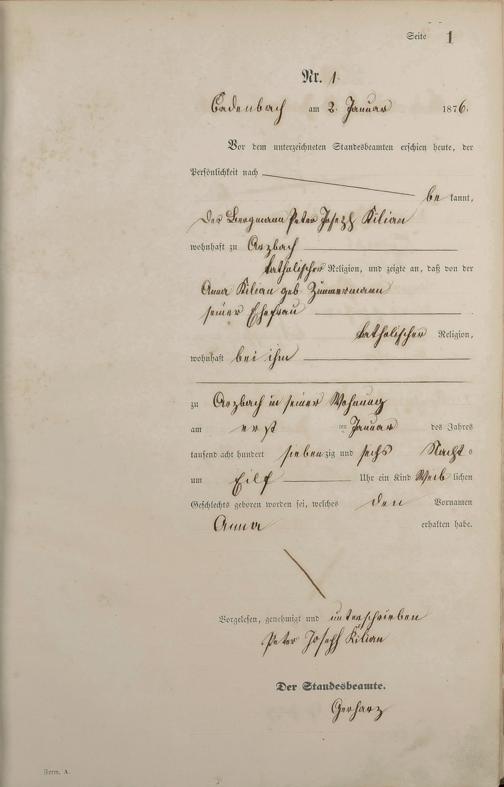 Seite 1
Nr. 1
Cadenbach am 2 Januar 1876.
Vor dem unterzeichneten Standesbeamten erschien heute, der
Persönlichkeit nach
be kannt,
der Bergmann Peter Joseph Kilian
wohnhaft zu Arzbach
katholischer Religion, und zeigte an, daß von der
Anna Kilian geb Zimmermann
seiner Ehefrau
katholischer Religion,
wohnhaft bei ihm
zu Arzbach in seiner Wohnung
am erst ten Januar des Jahres
tausend acht hundert siebenzig und sechs Nacht s
um Eilf Uhr ein Kind Weib lichen
Geschlechts geboren worden sei, welches den Vornamen
Anna erhalten habe.
Vorgelesen, genehmigt und unterschrieben
Peter Joseph Kilian
Der Standesbeamte.
Gerharz
Form. A.